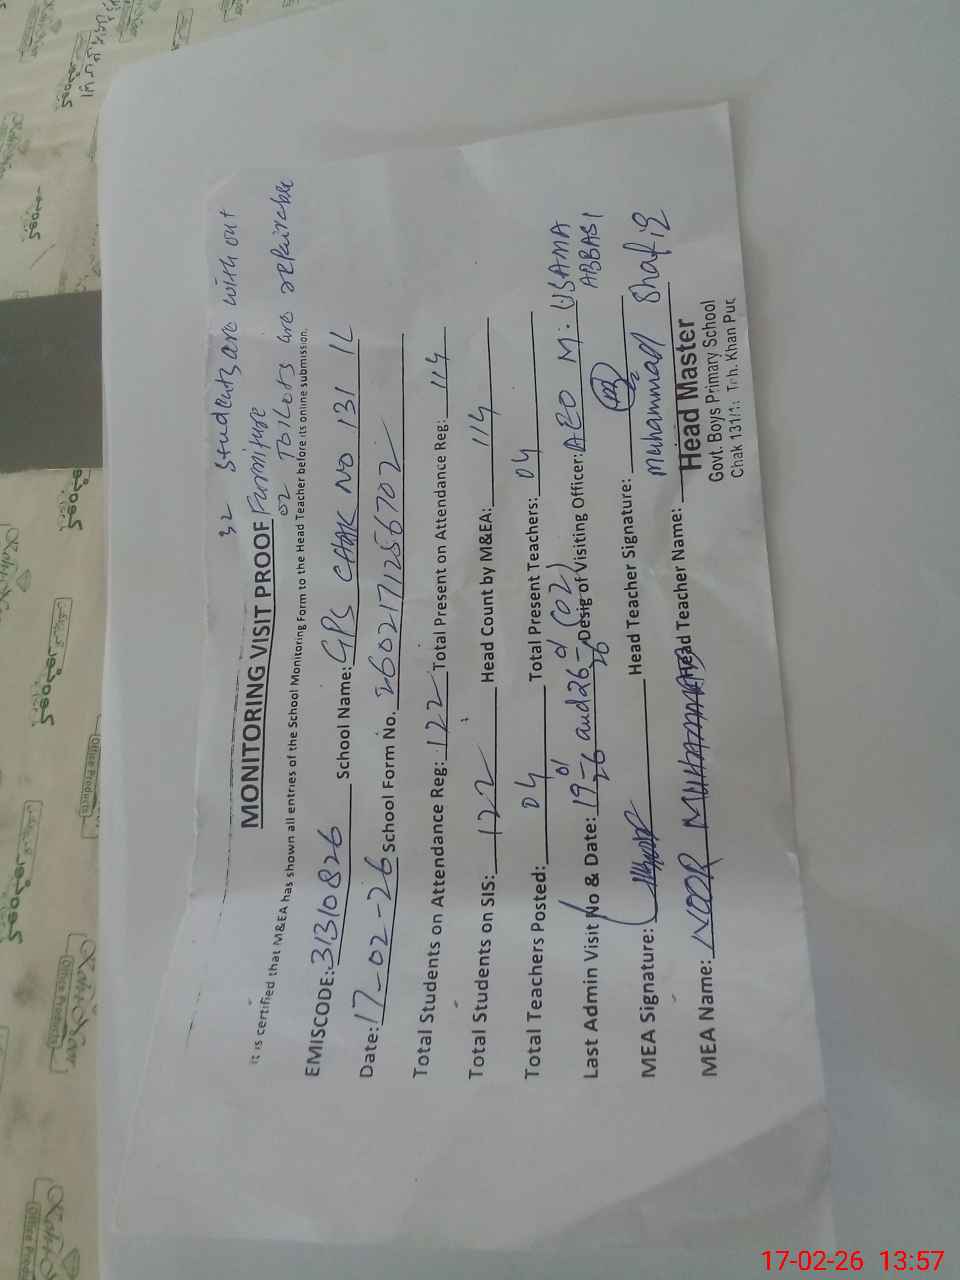 32 students are with out
Furniture
02 Toilets are repairable
MONITORING VISIT PROOF
It is certified that M&EA has shown all entries of the School Monitoring Form to the Head Teacher before its online submission.
EMISCODE: 31310826 School Name: GPS CHAK NO 131 1L
Date: 17-02-26 School Form No. 2602171256702
Total Students on Attendance Reg: 122 Total Present on Attendance Reg: 114
Total Students on SIS: 122 Head Count by M&EA: 114
Total Teachers Posted: 04 Total Present Teachers: 04
Last Admin Visit No & Date: 19-01-26 and 26-01-26 (02) Desig of Visiting Officer: AEO M: USAMA ABBASI
MEA Signature: Head Teacher Signature:
MEA Name: NOOR MUHAMMAD Head Teacher Name: Muhammad Shafiq
Head Master
Govt. Boys Primary School
Chak 131/1. Teh. Khan Pur
Office Products
17-02-26 13:57